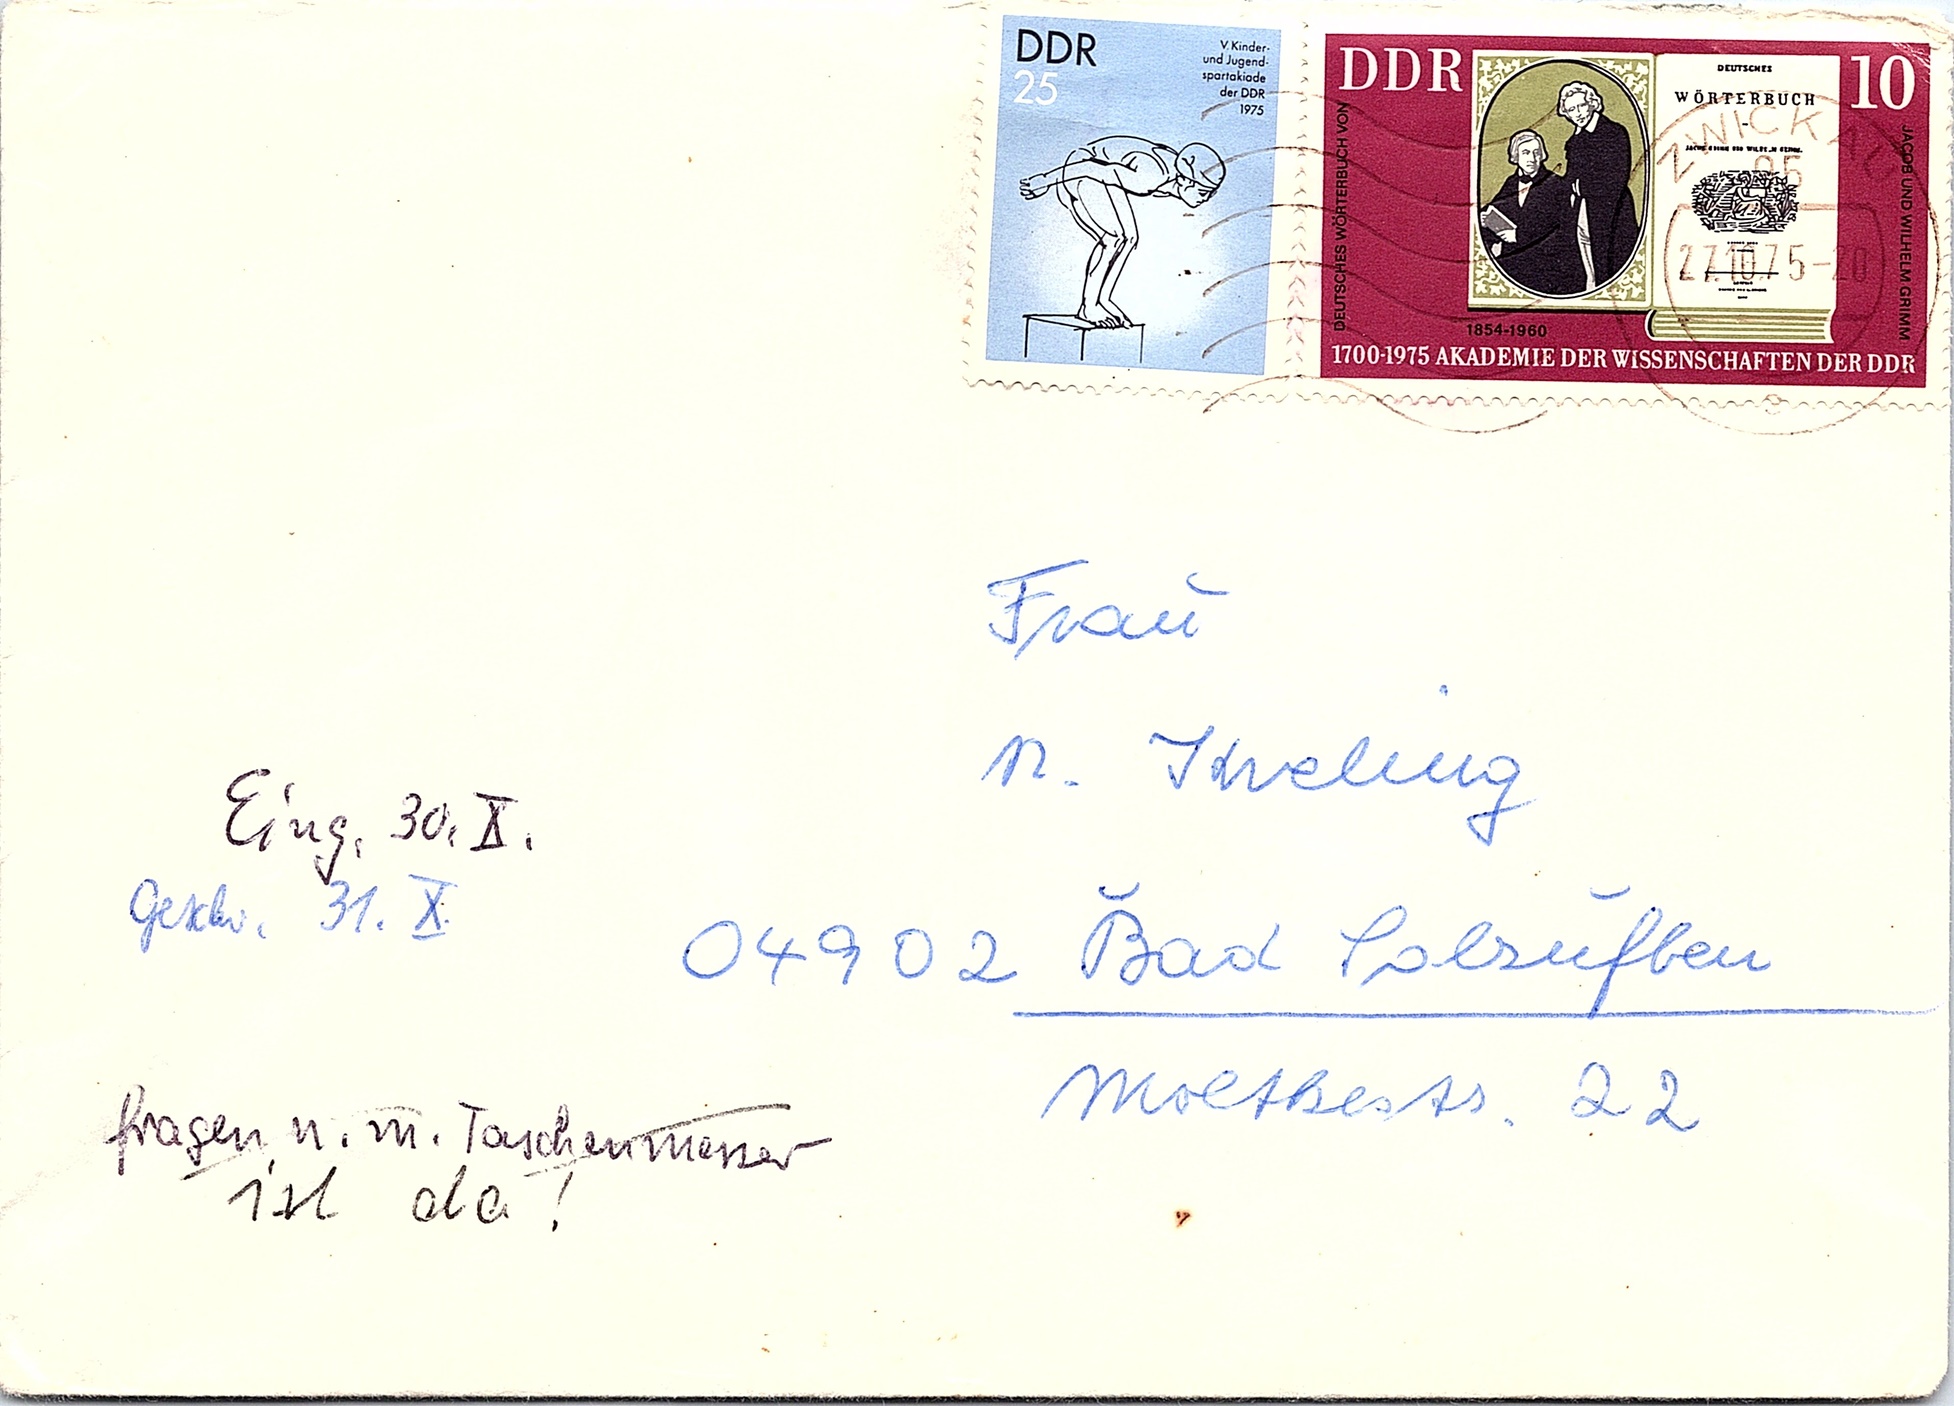 DDR
25
V. Kinder-
und Jugend-
spartakiade
der DDR
1975
DDR
10
DEUTSCHES WÖRTERBUCH VON
JACOB UND WILHELM GRIMM
DEUTSCHES
WÖRTERBUCH
1854-1960
1700-1975 AKADEMIE DER WISSENSCHAFTEN DER DDR
ZWICKAU
95
27.10.75-20
Frau
04902 Bad Salzuflen
Moltkestr. 22
Eing. 30. X.
Geschr. 31. X.
fragen n. m. Taschenmesser
ist da!